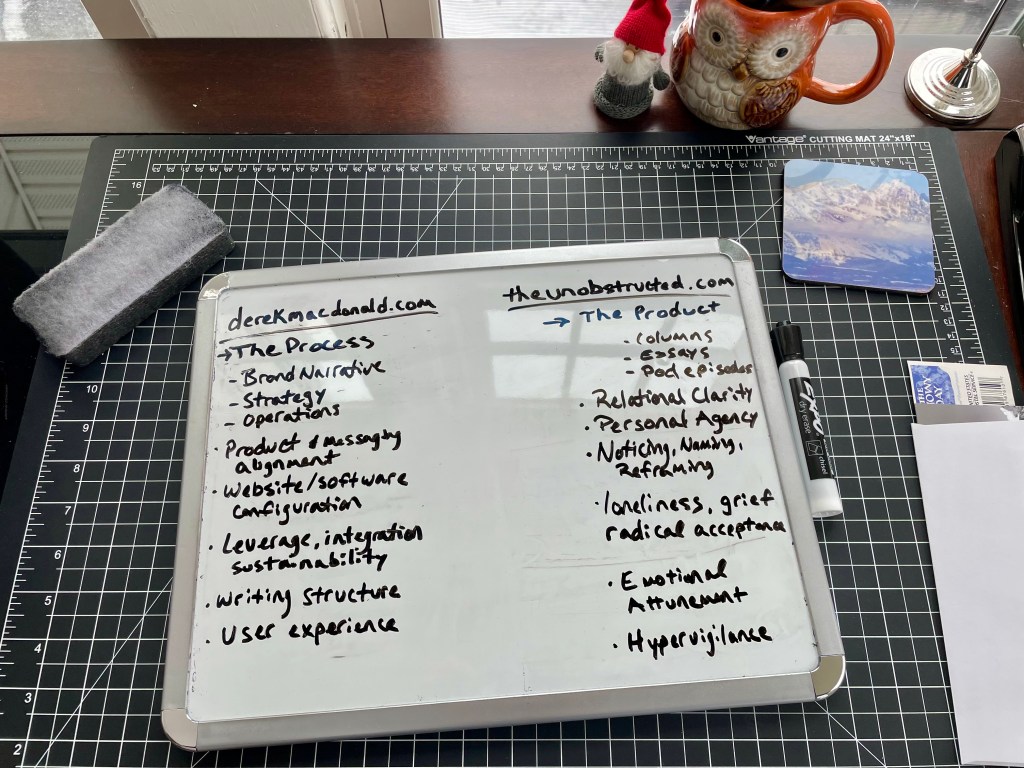 Vantage® CUTTING MAT 24"x18"
16
10
9
8
7
6
5
4
3
2
derekmacdonald.com
→ The Process
- Brand Narrative
- Strategy
- Operations
· Product & messaging
alignment
· Website/software
configuration
· Leverage, integration
sustainability
· Writing Structure
· User experience
theunobstructed.com
→ The Product
- Columns
- Essays
- Pod episodes
· Relational Clarity
· Personal Agency
· Noticing, Naming,
Reframing
· loneliness, grief
radical acceptance
· Emotional
Attunement
· Hypervigilance
EXPO